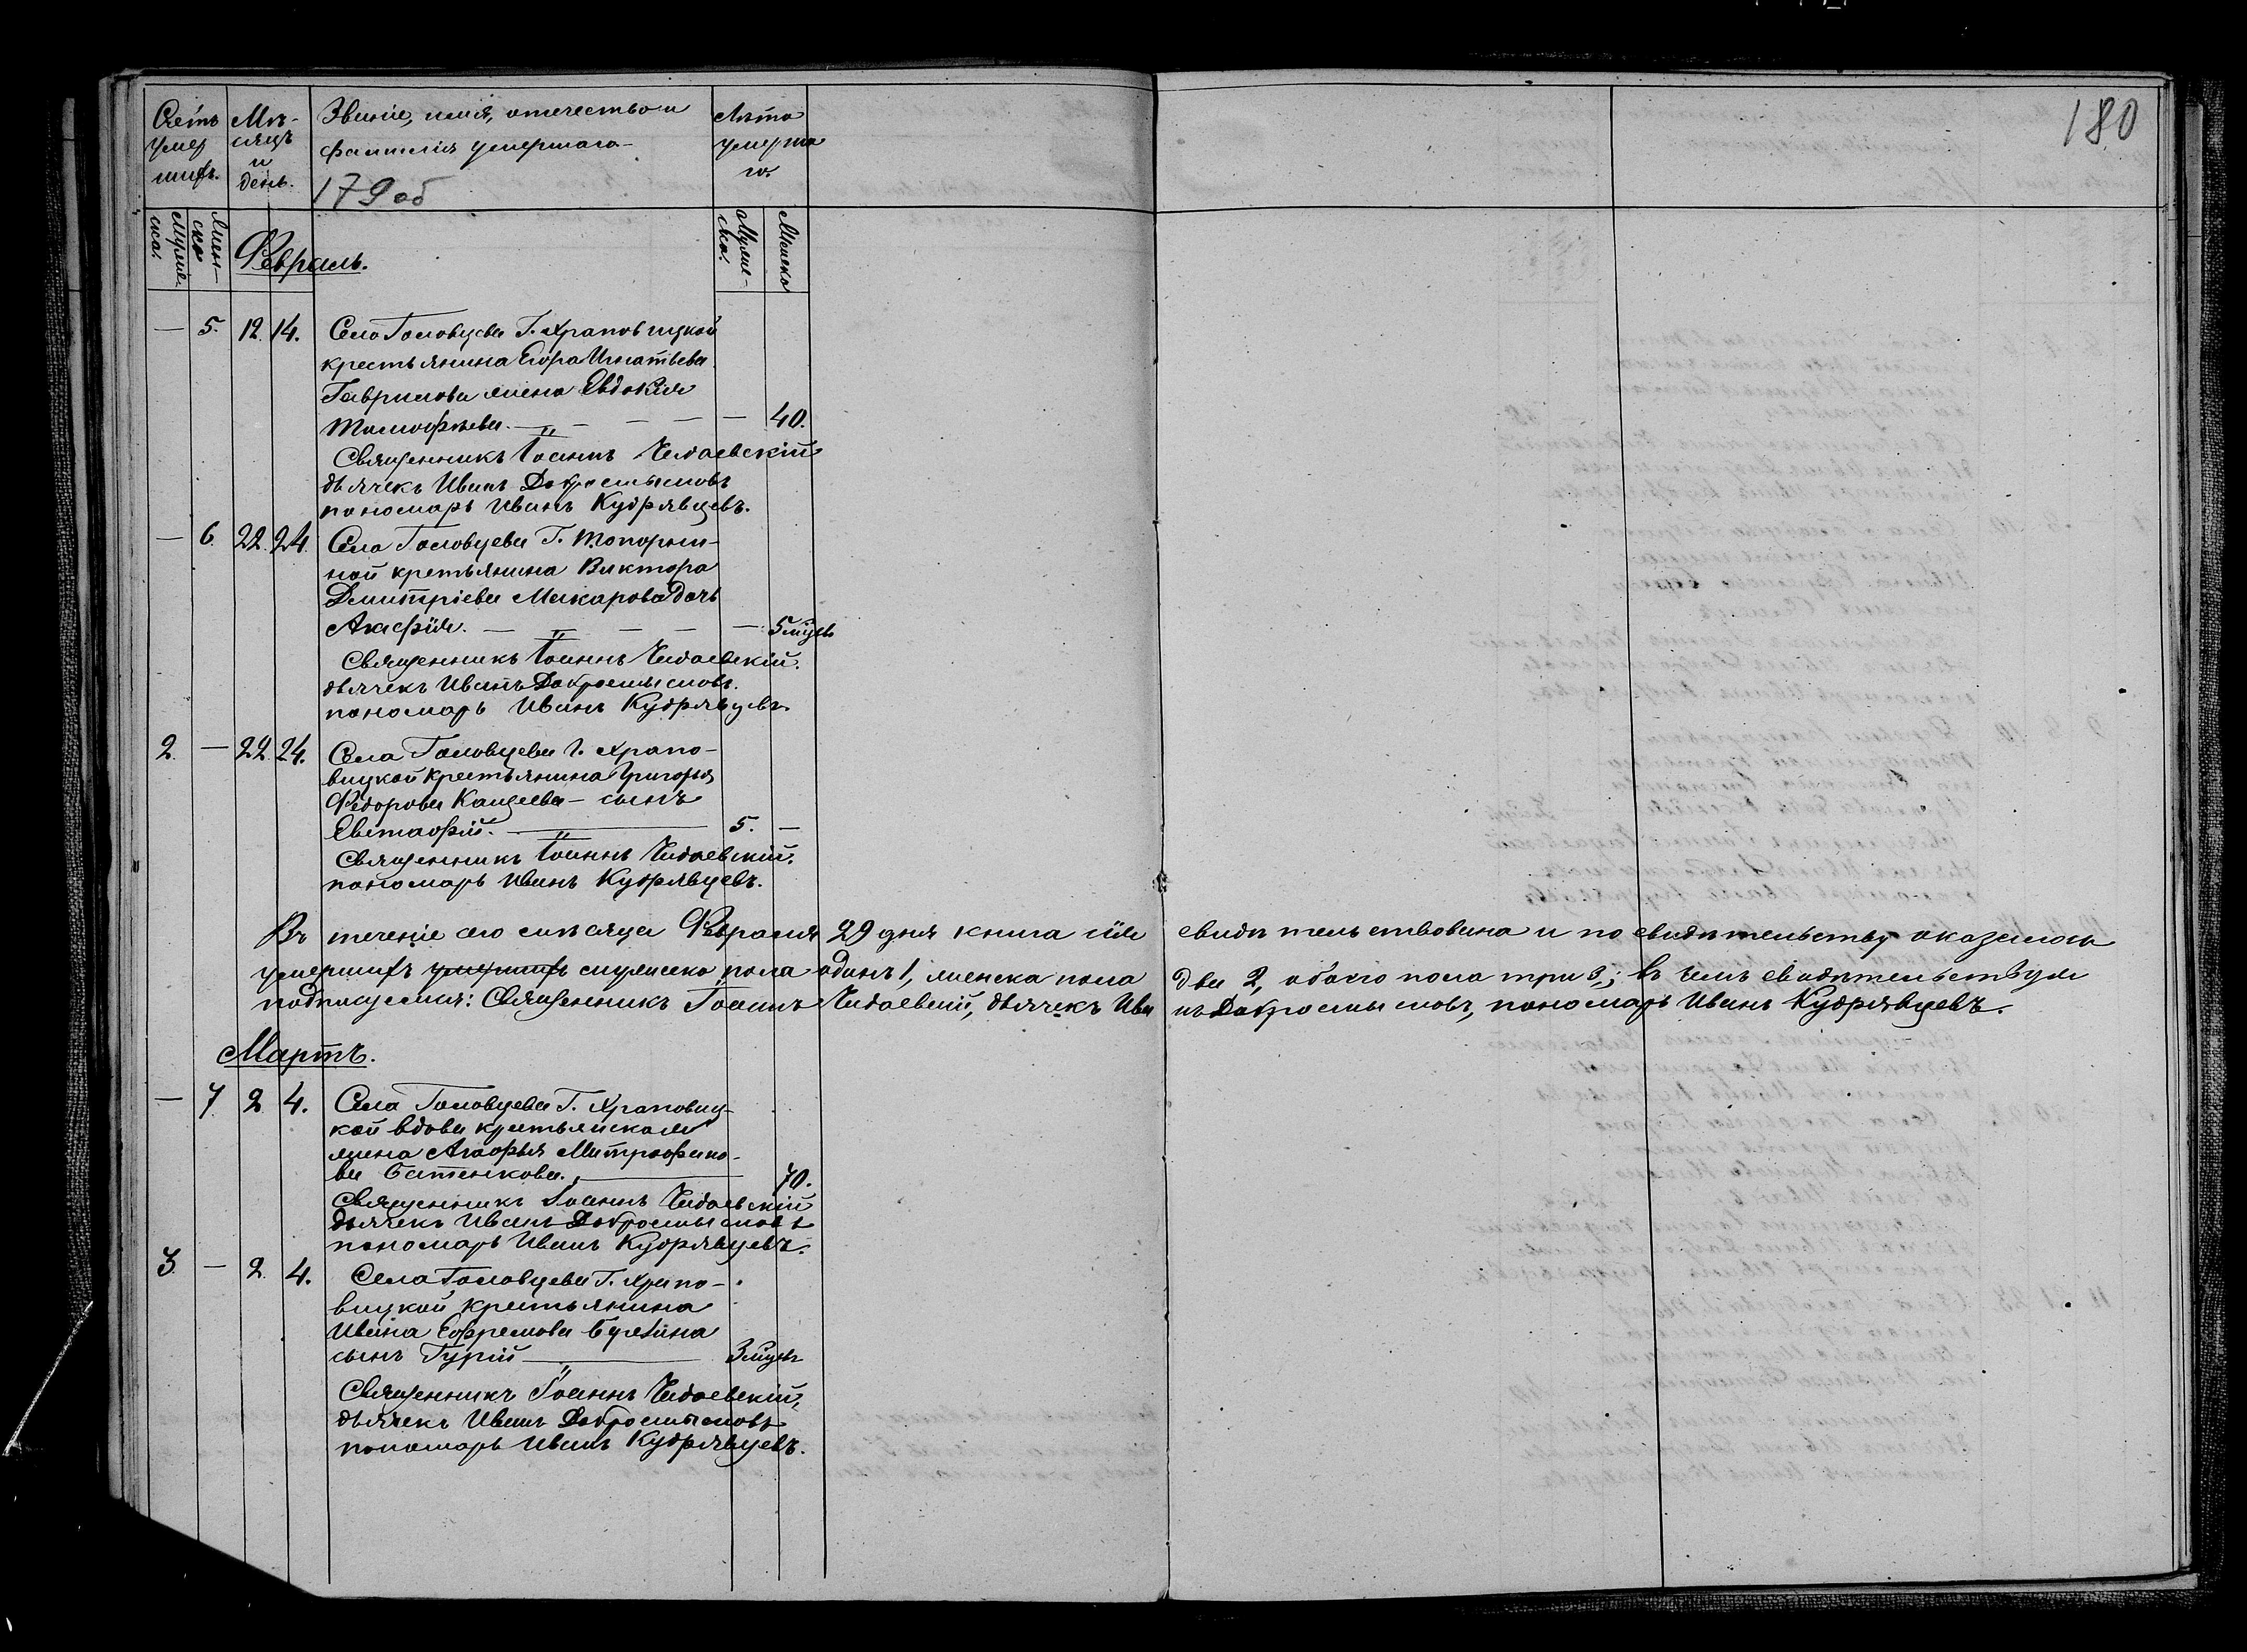 180
Счетъ умер шихъ.
Мѣ- сяцъ и день.
Званіе, имя, отечество и
фамилія умершаго
Лѣта умерша го.
179 об
Мужеска.
Женска
Мужеска.
Женска
Февраль.
— 5. 12. 14. Села Головцева Г. Храповицкой
крестьянина Егора Игнатьева
Гаврилова жена Евдокія
Тимофѣева. — — — — 40.
Священникъ Іоаннъ Чедаевскій
дьячекъ Иванъ Добросмысловъ
пономарь Иванъ Кудрявцевъ.
— 6. 22. 24. Села Головцева Г. Топорни-
ной кретьянина Виктора
Дмитріева Макарова дочь
Агафія. — — — — 5 мѣцъ
Священникъ Іоаннъ Чедаевскій.
дьячекъ Иванъ Добросмысловъ.
пономарь Иванъ Кудрявцевъ.
2. — 22. 24. Села Головцева Г. Храпо-
вицкой крестьянина Григорья
Федорова Кащеева — сынъ
Евстафій. — 5. —
Священникъ Іоаннъ Чедаевскій.
пономарь Иванъ Кудрявцевъ.
Въ теченіе сего мѣсяца Февраля 29 дня книга сія свидѣтельствована и по свидѣтельству оказалось
умершихъ умершихъ мужеска пола одинъ 1, женска пола два 2, обоего пола три 3; въ чемъ свидѣтельствуя
подписуемся: Священникъ Іоаннъ Чедаевскій, дьячекъ Иванъ Добросмысловъ, пономарь Иванъ Кудрявцевъ.
Мартъ.
— 7. 2. 4. Села Головцева Г. Храповиц-
кой вдова крестьянская
жена Агафья Митрофано-
ва Батенкова. — 70.
Священникъ Іоаннъ Чедаевскій
дьячекъ Иванъ Добросмысловъ
пономарь Иванъ Кудрявцевъ.
3. — 2. 4. Села Головцева Г. Храпо-
вицкой крестьянина
Ивана Ефремова
сынъ Гурій — 3 мѣцъ
Священникъ Іоаннъ Чедаевскій,
дьячекъ Иванъ Добросмысловъ
пономарь Иванъ Кудрявцевъ.